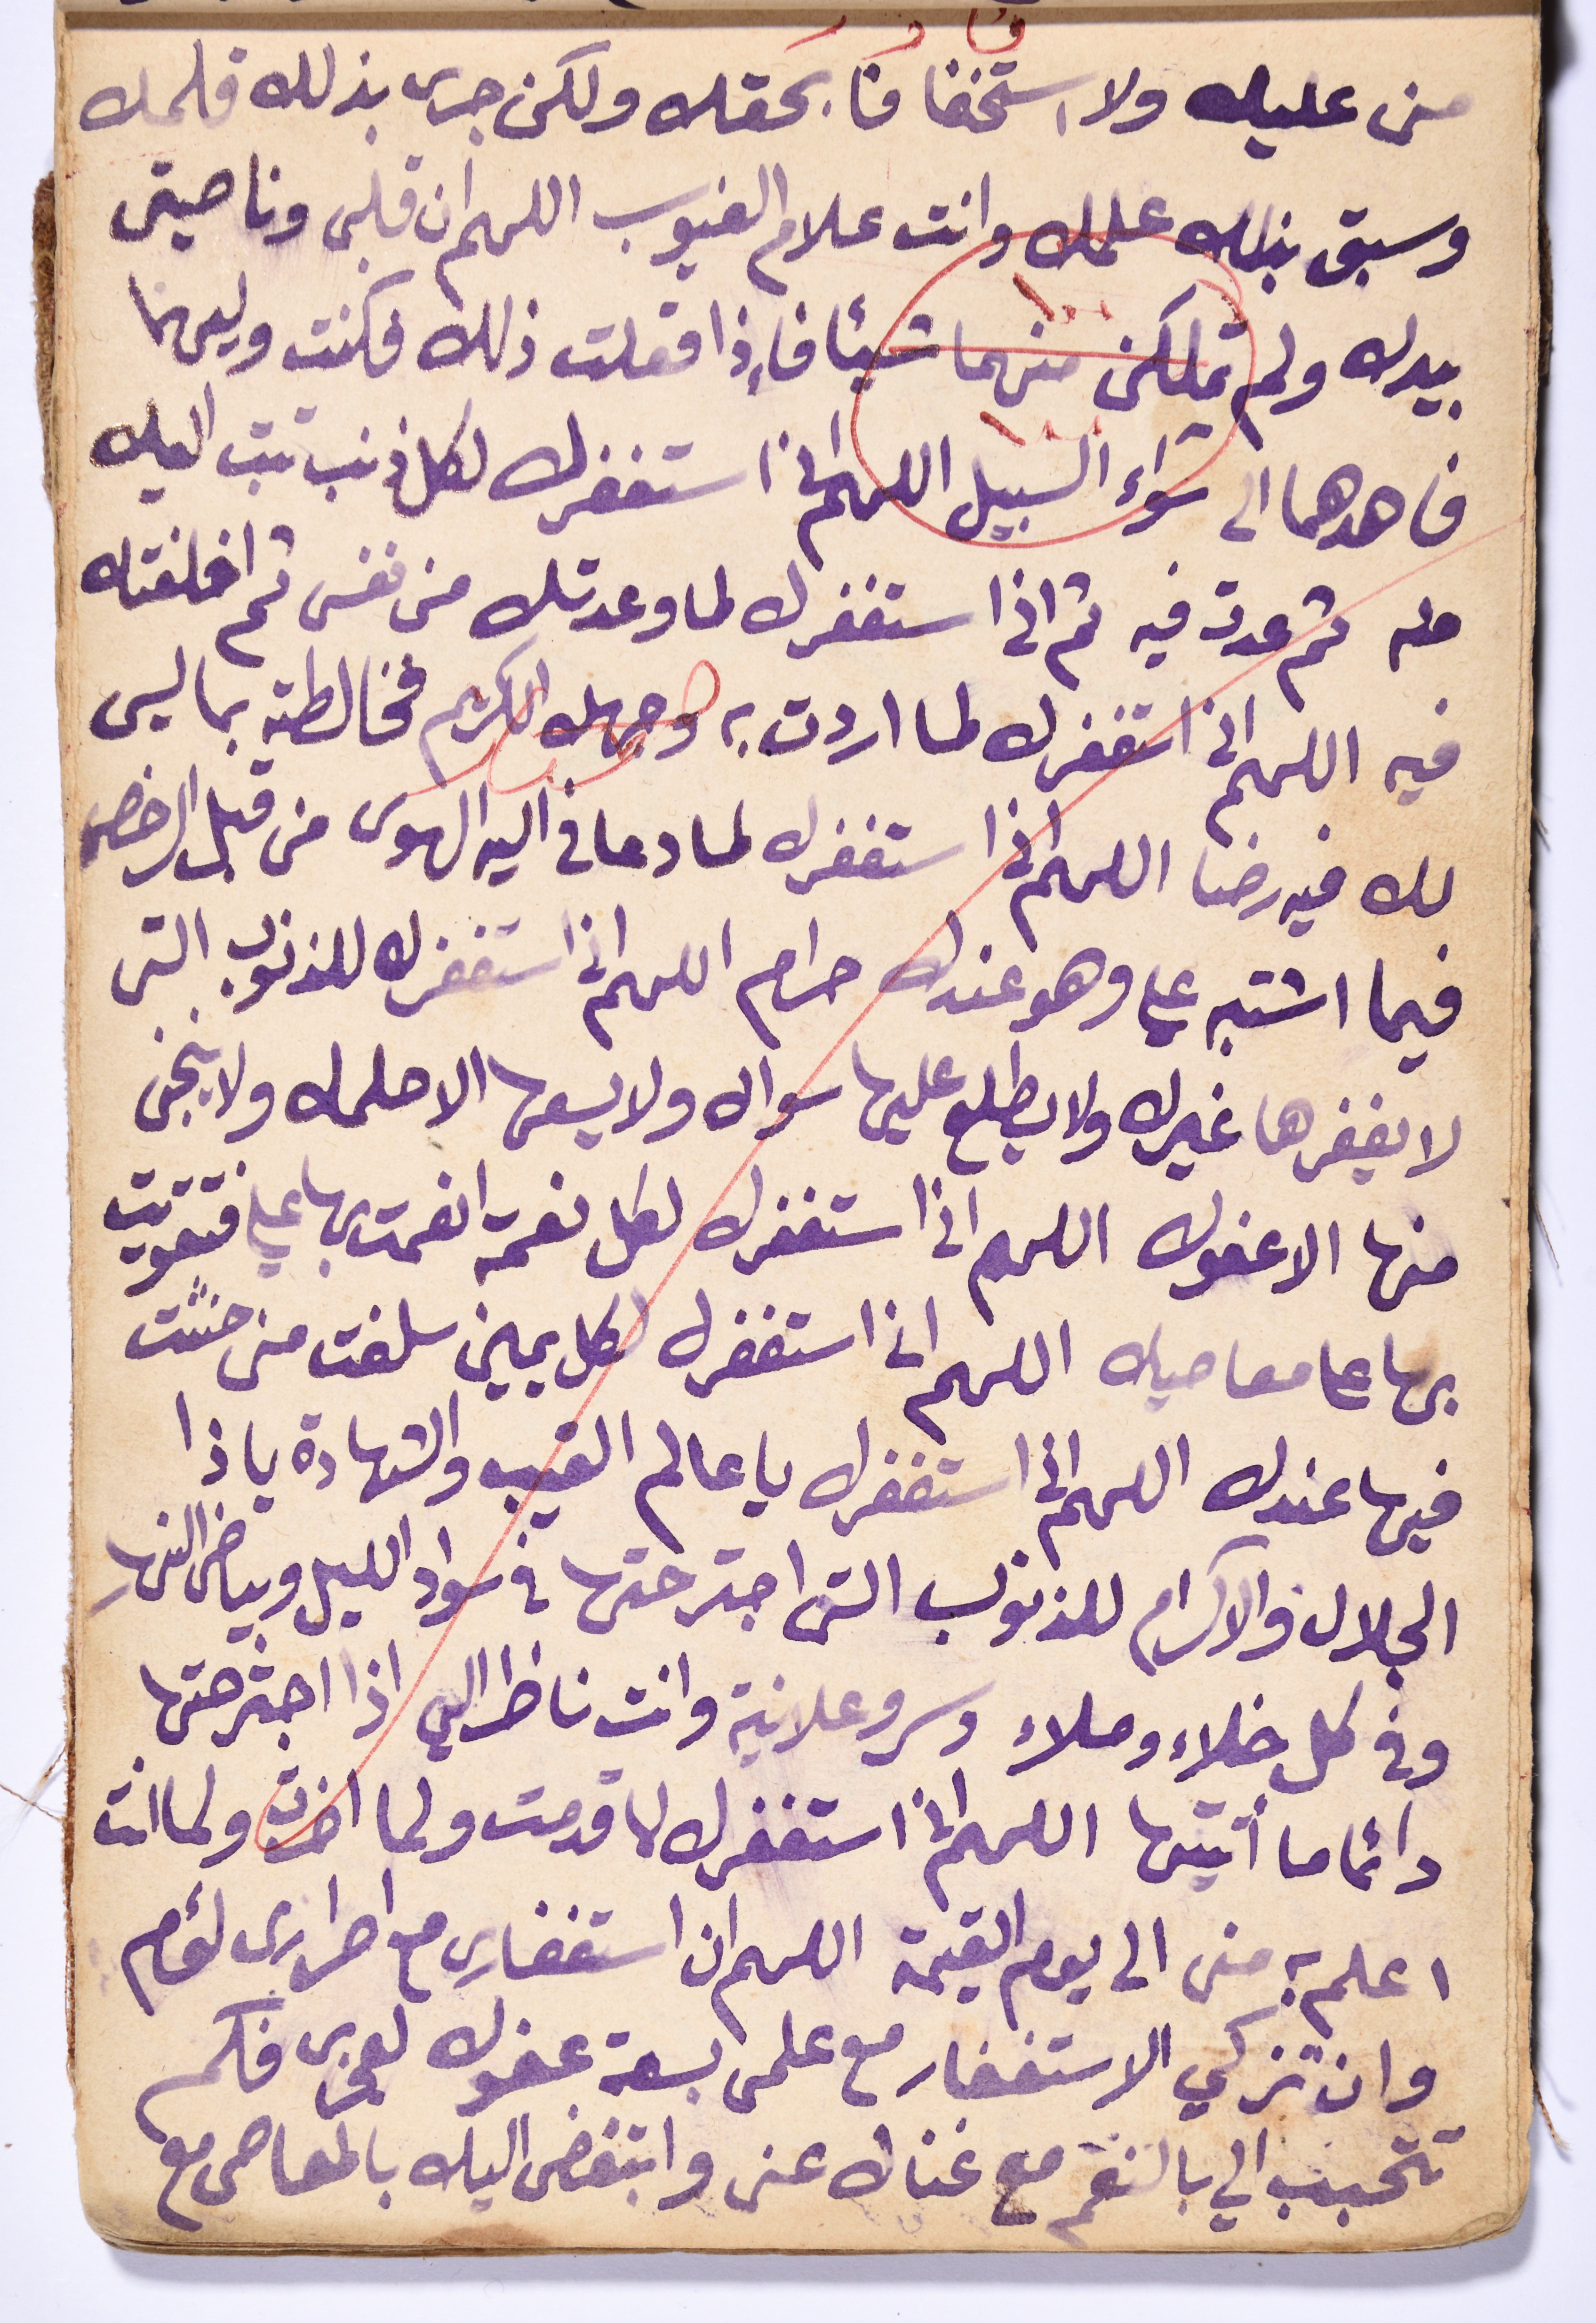 منى عليك ولا استخفافا بحقك ولكن جرى بذلك قلمك
وسبق بذلك علمك وانت علام الغيوب اللهم ان قلبى وناصيتى
بيدك ولم تملكنى منهما شيئا فإذا فعلت ذلك فكنت وليهما
فاهدهما الى سواء السبيل اللهم انى استغفرك لكل ذنب تبت اليك
منه ثم عدت فيه ثم انى استغفرك لما وعدتك من نفسى ثم اخلفتك
فيه اللهم انى استغفرك لما اردت به وجهك الكريم فخالطته بما ليس
لك فيه رضا اللهم انى استغفرك لما دعانى اليه الهوى من قبل الرخص
فيما اشتبه علي وهو عندك حرام اللهم انى استغفرك للذنوب التى
لا يغفرها غيرك ولا يطلع عليها سواك ولا يسعها الا حلمك ولا ينجى
منها الا عفوك اللهم انى استغفرك لكل نعمة انعمت بها علي فتقويت
بها على معاصيك اللهم انى استغفرك لكل يمين سلفت منى حنثت
فيها عندك اللهم انى استغفرك يا عالم الغيب والشهادة يا ذا
الجلال والاكرام للذنوب التى اجترحتها فى سواد الليل وبياض النهار
وفى كل خلاء وملاء وسر وعلانية وانت ناظر الي اذا اجترحتها
دائما ما أتيتها اللهم انى استغفرك لما قدمت ولما اخرت ولما انت
اعلم به منى الى يوم القيمة اللهم ان استغفارى مع اصرارى لؤم
وان تركي الاستغفار مع علمى بسعة عفوك لعجزى فكم
تتحبب الي بالنعم مع غناك عنى واتبغض اليك بالمعاصى مع